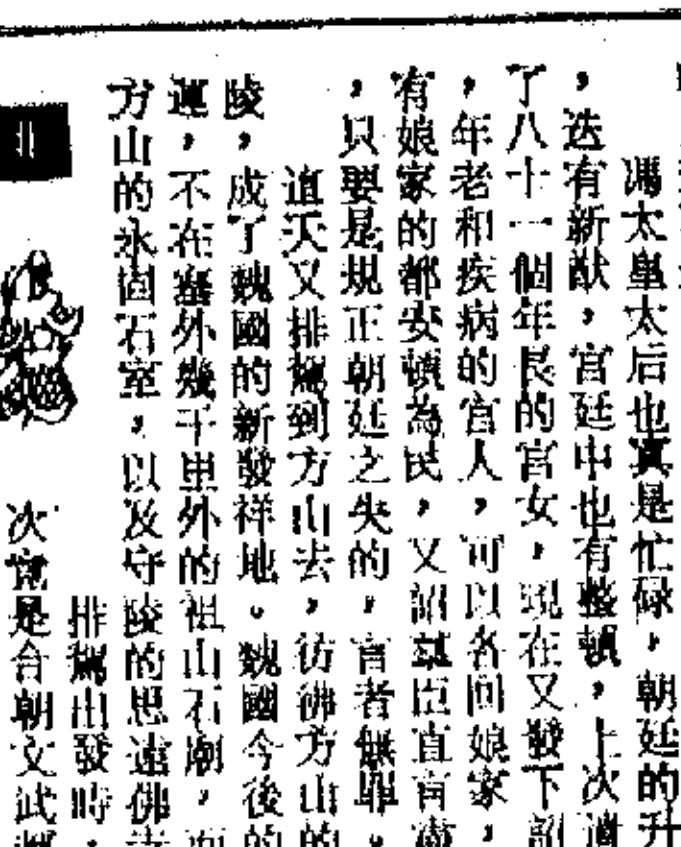 馮太皇太后也真是忙碌，朝廷的升
，迭有新猷，宮廷中也有整頓，上次遣
了八十一個年長的宮女，現在又發下詔
，年老和疾病的宮人，可以各回娘家，
有娘家的都安頓為民，又詔群臣直言
，只要是規正朝廷之失的，言者無罪。
這天又排駕到方山去，彷彿方山的
陵，成了魏國的新發祥地。魏國今後的
運，不在塞外幾千里外的祖山石廟，而
方山的永固石室，以及守陵的思遠佛寺
排駕出發時，
次當是合朝文武